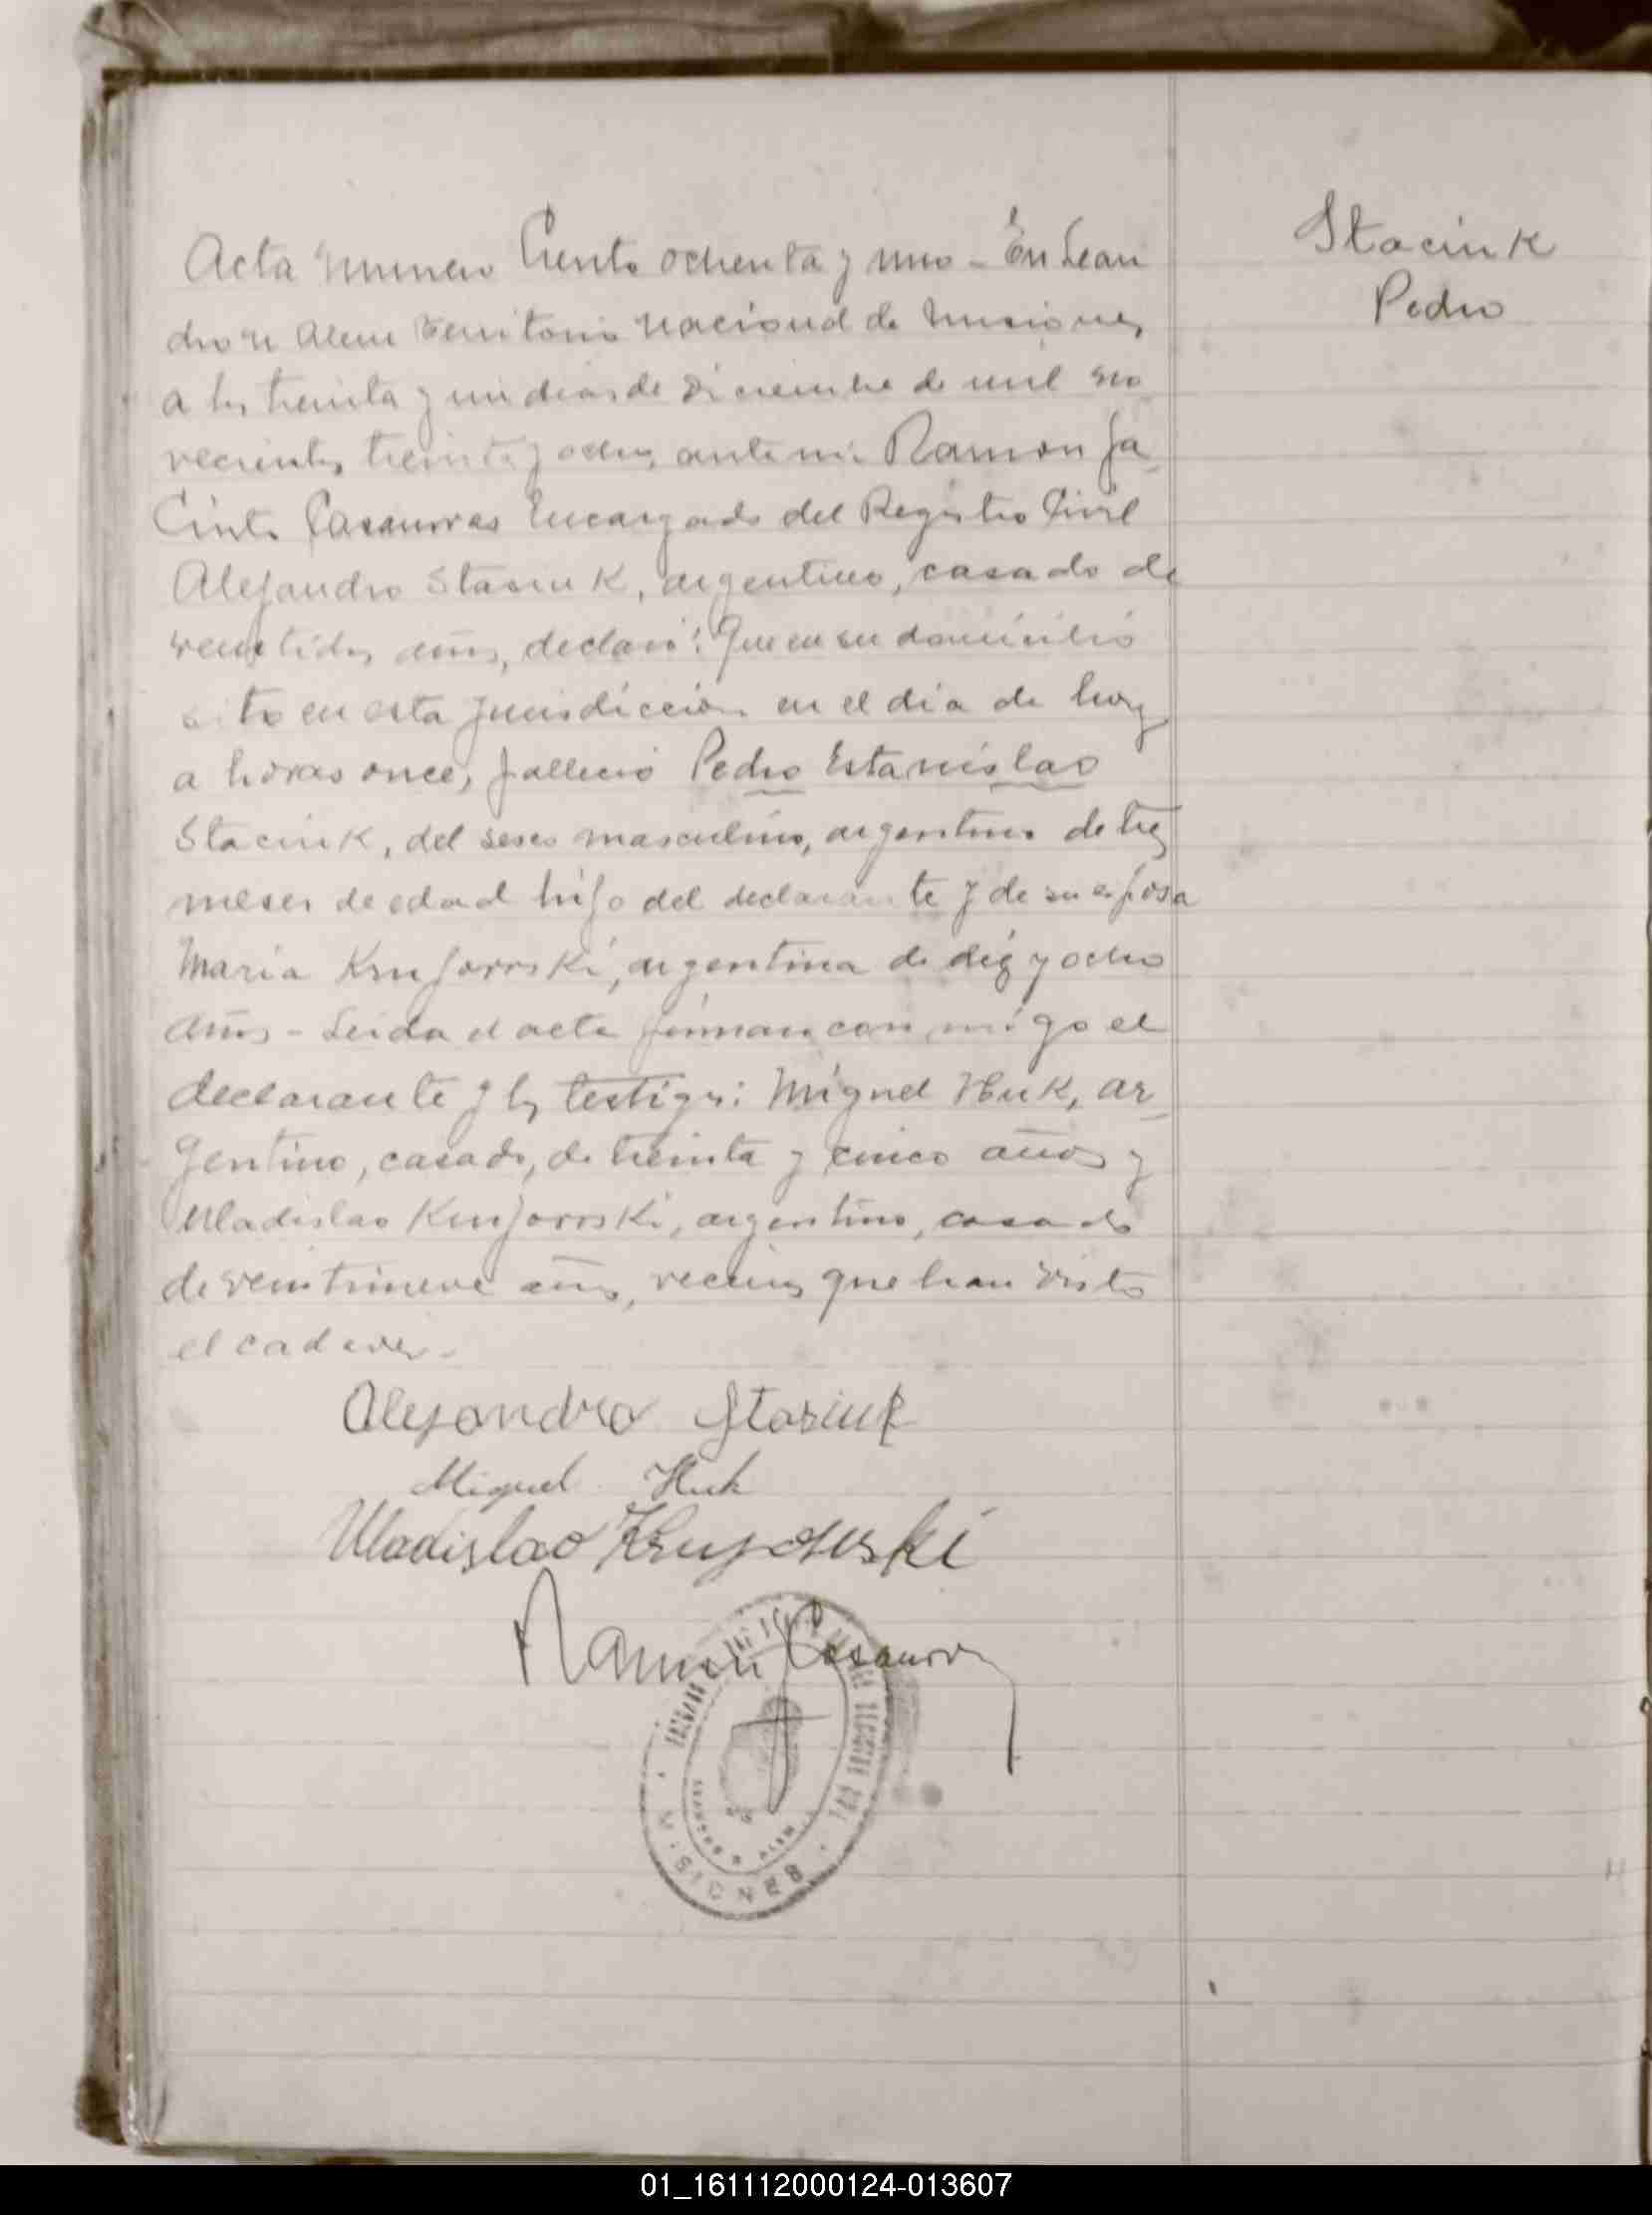 Stacink
Pedro
Acta numero Ciento ochenta y uno - En Lean
dro N Alem Territorio Nacional de Misiones,
a los treinta y un dias de Diciembre de mil no
vecientos treinta y ocho, ante mi Ramon Ja
Cinto Casauvas Encargado del Registro Civil
Alejandro Stasiuk, argentino, casado de
veintidos años, declaró: Que en su domicilio
sito en esta jurisdiccion en el dia de hoy
a horas once, fallecio Pedro Estanislao
Staciuk, del sexo masculino, argentino de tres
meses de edad hijo del declarante y de su esposa
Maria Krujorski, argentina de diez y ocho
años - Leida el acta firman con migo el
declarante y los testigos: Miguel Huk, ar
gentino, casado, de treinta y cinco años y
Uladislao Krujorski, argentino, casado
de veintinueve años, vecinos que han visto
el cadaver.-
Alejandro Stasiuk
Miguel Huk
Uladislao Krujouski
Ramon Casauva
MISIONES
ALEM
01_161112000124-013607